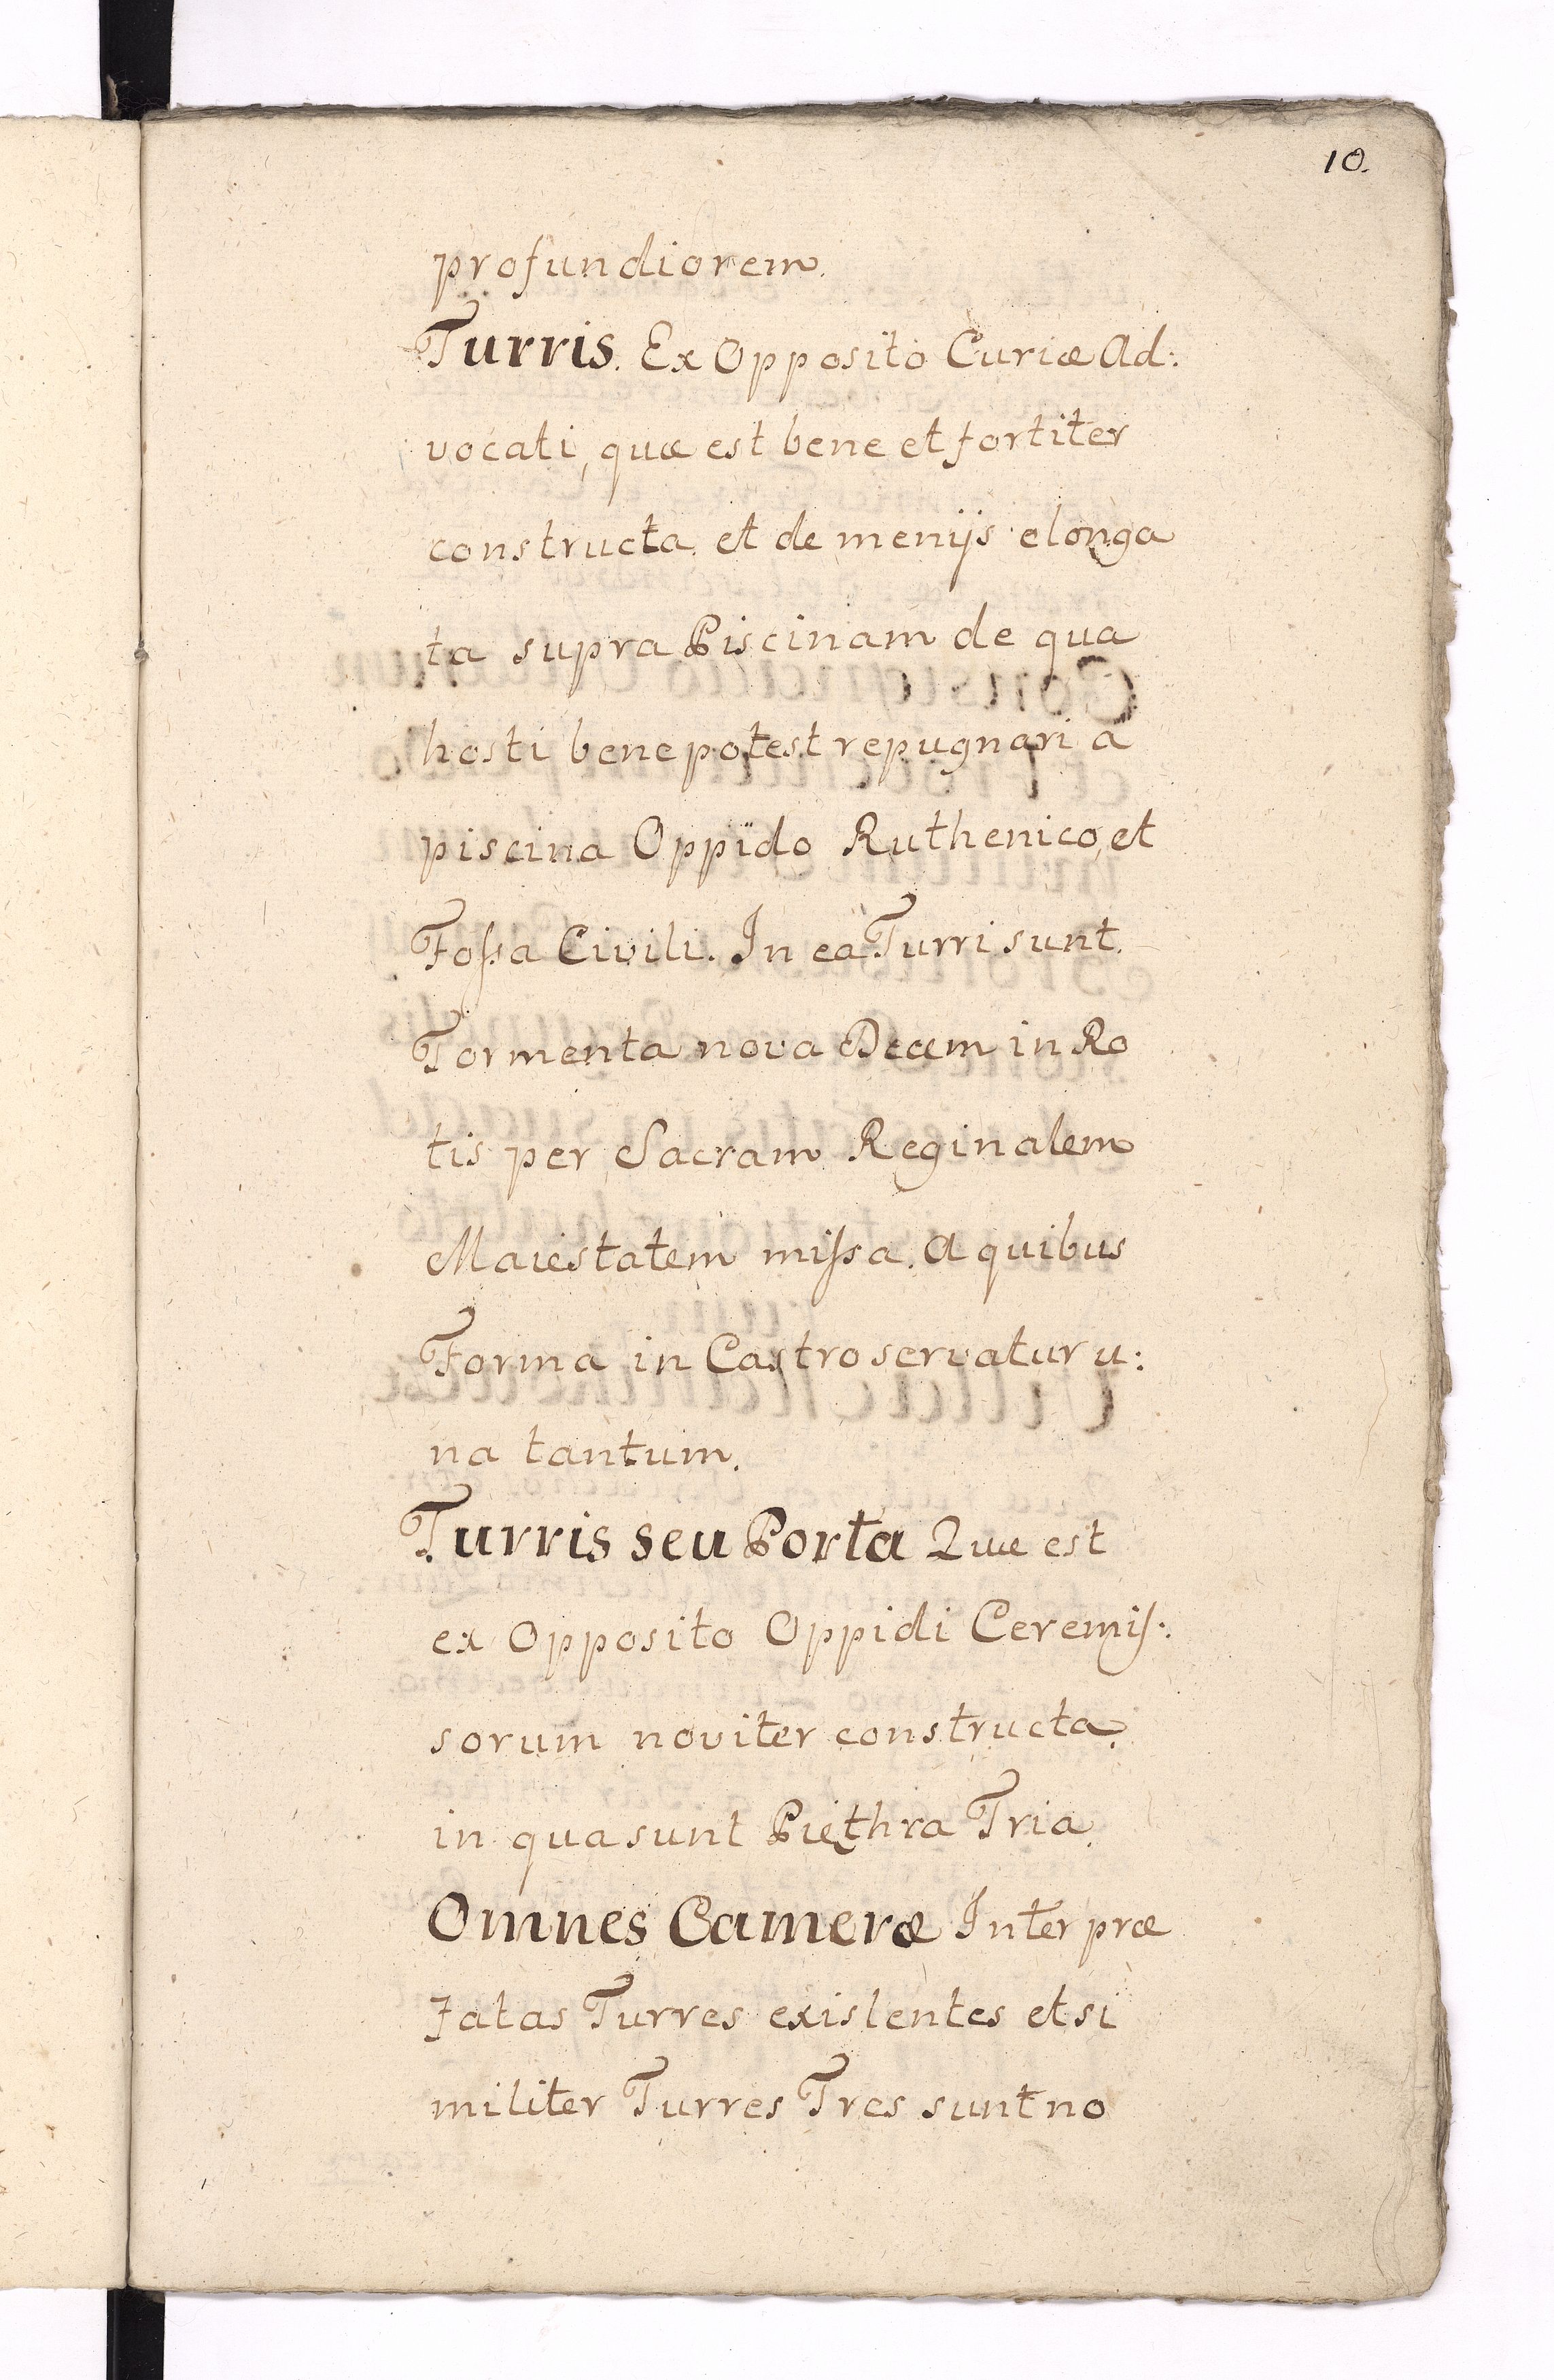 10.
profundiorem.
Turris. Ex Opposito Curiæ Ad:
vocati, quæ est bene et fortiter
constructa et de menijs elonga
ta supra Piscinam de qua
hosti bene potest repugnari a
piscina Oppido Ruthenico, et
Foſsa Civili. In ea Turri sunt
Tormenta nova Decem in Ro
tis per Sacram Reginalem
Maiestatem miſsa. A quibus
Forma in Castro servatur u:
na tantum.
Turris seu Porta Quæ est
ex Opposito Oppidi Ceremiſ:
sorum noviter constructa,
in qua sunt Pięthra Tria.
Omnes Cameræ Inter præ
fatas Turres existentes et si
militer Turres Tres sunt no